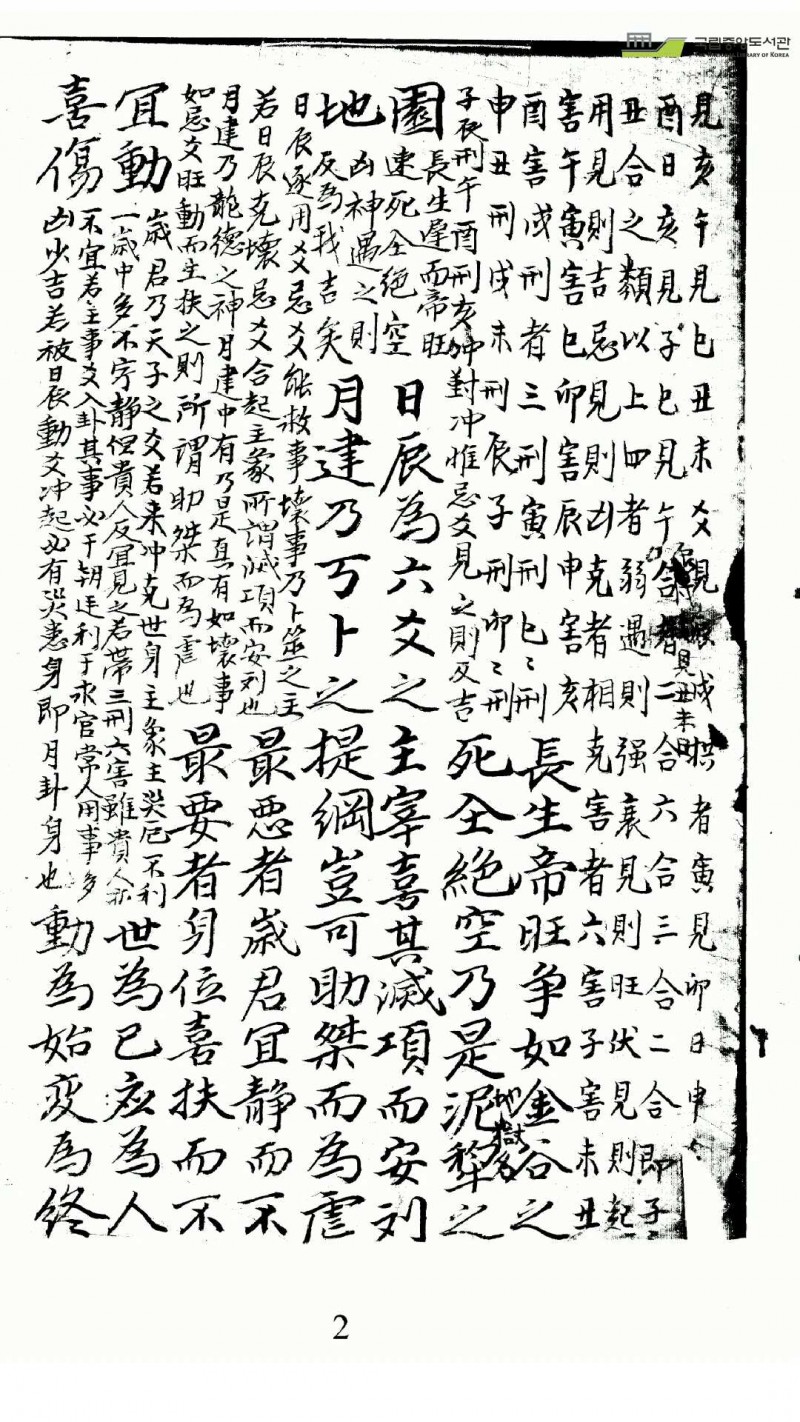 見亥午見巳丑未爻見辰戌拱者寅見卯日申々
酉日亥見子巳見午合者二合六合三合二合即子
丑合之類以上四者弱遇則强衰見則旺伏見則起
用見則吉忌見則凶克者相克害者六害子害未丑
害午寅害巳卯害辰申害亥
酉害戌刑者三刑寅刑巳〻刑
申丑刑戌未刑辰子刑卯〻刑
子辰刑午酉刑亥冲對冲惟忌爻見之則反吉
長生帝旺争如金谷之
園
長生遲而帝旺
速死仝絶空
死仝絶空乃是泥犂之
地獄名
地
凶神遇之則
反為我吉矣
日辰為六爻之主宰喜其滅項而安刘
日辰逐用爻忌爻能救事壊事乃卜筮之主
若日辰克壊忌爻合起主象所謂滅項而安刘也
月建乃万卜之提綱豈可助桀而為虐
月建乃龍德之神月建中有乃是真有如壊事
如忌爻旺動而生扶之則所謂助桀而為虐也
最悪者歳君宜静而不
宜動
歳君乃天子之爻若来冲克世身主象主災厄不利
一歳中多不宁静但貴人反宜見之若帯三刑六害雖貴人亦
不宜若主事爻入卦其事必干朝廷利于求官常人用事多
凶少吉若被日辰動爻冲起必有災患身即月卦身也
最要者身位喜扶而不
喜傷
世為已应為人
動為始変為終
국립중앙도서관
2